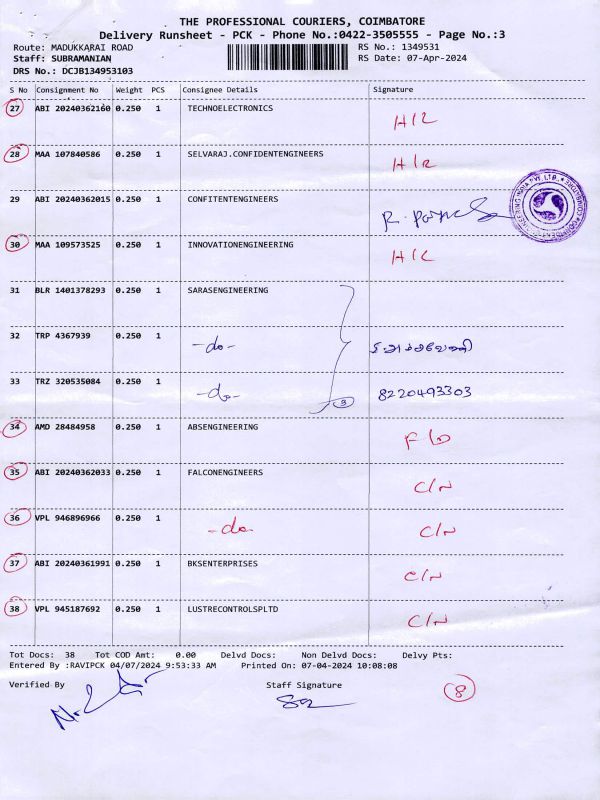 THE PROFESSIONAL COURIERS, COIMBATORE
Delivery Runsheet - PCK - Phone No.:0422-3505555 - Page No.:3
Route: MADUKKARAI ROAD RS No.: 1349531
Staff: SUBRAMANIAN RS Date: 07-Apr-2024
DRS No.: DCJB134953103
S No Consignment No Weight PCS Consignee Details Signature
27 ABI 20240362160 0.250 1 TECHNOELECTRONICS H/L
28 MAA 107840586 0.250 1 SELVARAJ.CONFIDENTENGINEERS H/L
29 ABI 20240362015 0.250 1 CONFITENTENGINEERS
30 MAA 109573525 0.250 1 INNOVATIONENGINEERING H/L
31 BLR 1401378293 0.250 1 SARASENGINEERING
32 TRP 4367939 0.250 1 -do-
33 TRZ 320535084 0.250 1 -do- 3 8220493303
34 AMD 28484958 0.250 1 ABSENGINEERING
35 ABI 20240362033 0.250 1 FALCONENGINEERS C/N
36 VPL 946896966 0.250 1 -do- C/N
37 ABI 20240361991 0.250 1 BKSENTERPRISES C/N
38 VPL 945187692 0.250 1 LUSTRECONTROLSPLTD C/N
Tot Docs: 38 Tot COD Amt: 0.00 Delvd Docs: Non Delvd Docs: Delvy Pts:
Entered By :RAVIPCK 04/07/2024 9:53:33 AM Printed On: 07-04-2024 10:08:08
Verified By Staff Signature 8